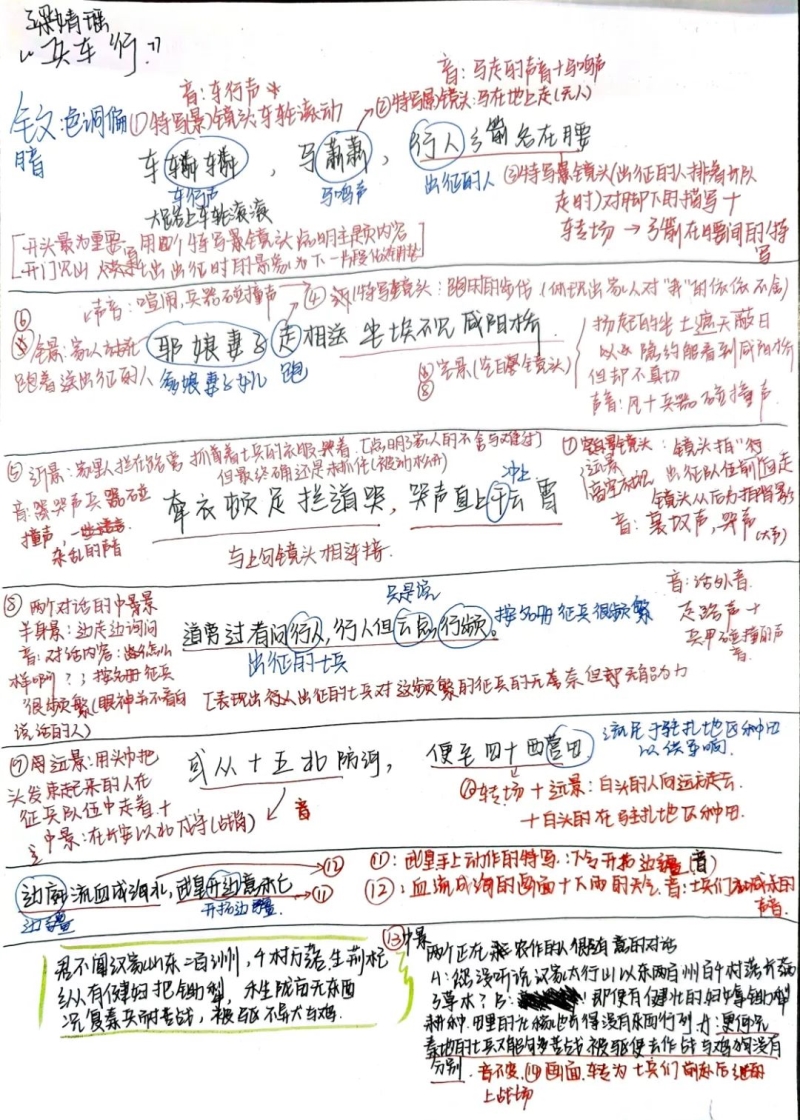 "兵车行"
音:车行声
音:马走的声音+马鸣声
全文:色调偏暗
①特写(景)镜头:车轮滚动
②特写(景)镜头:马在地上走(无人)
车辚辚,马萧萧,行人弓箭各在腰
车行声
马鸣声
出征的人
大路上车轮滚滚
③特写景镜头(出征的人排着队
走时)对脚下的描写+
转场→弓箭在腰间的特写
[开头最为重要,用四个特写景镜头点明主题内容
开门见山
声音:喧闹,兵器碰撞声
④特写镜头:跑时的步伐(体现出家人对"我"的依依不舍)
⑥全景:家人
跑着送出征的人
耶娘妻子走相送 尘埃不见咸阳桥
爷娘妻子女儿
跑
⑧空景(空镜头)
扬起的尘土遮天蔽日
以及隐约能看到咸阳桥
但却不真切
声音:风+兵器碰撞声
⑤近景:家里人拦在路旁 抓着士兵的衣服哭着.[点明家人的不舍与难过]
但最终还是未抓住
音:哭声兵器碰
撞声,
杂乱的声音
牵衣顿足拦道哭,哭声直上干云霄
冲上
与上句镜头相连接.
⑦
远景
镜头拍"行
出征队伍向前走
镜头从后方拍背影
音:哭声
⑧两个对话的中景
半身景:边走边询问
音:对话内容:怎么
样啊?;按名册征兵
很频繁(眼神并不看向
说话的人)
只是说
道旁过者问行人,行人但云点行频。
按名册征兵很频繁
出征的士兵
音:话外音.
走路声+
兵甲碰撞的声
音.
[表现出行人出征的士兵对这频繁的征兵的无奈但却无能为力
⑨用远景:用头巾把
头发束起来的人在
征兵队伍中走着.+
中景:在以北戍守(站哨)
或从十五北防河,便至四十西营田
音
⑩转场+远景:白头的人向远方走去.
+白头的在驻扎地区种田.
边庭流血成海水,武皇开边意未已
边疆
开拓边疆
⑪:武皇手上动作的特写:下令开拓边疆
⑫:血流成河的画面+下雨的天气.音:士兵们的声音.
君不闻汉家山东二百州,千村万落生荆杞
纵有健妇把锄犁,禾生陇亩无东西
况复秦兵耐苦战,被驱不异犬与鸡.
⑬中景
两个正在农作的人很随意的对话
A:您没听说汉家太行山以东两百州百千村落
草木?B:即便有健壮的妇女拿锄犁
耕种.田里的庄稼也长得没有东西行列.A:更何况
秦地的士兵又能够苦战被驱使去作战与鸡狗没有
分别.音不变.⑭画面.转为士兵们前赴后继的
上战场